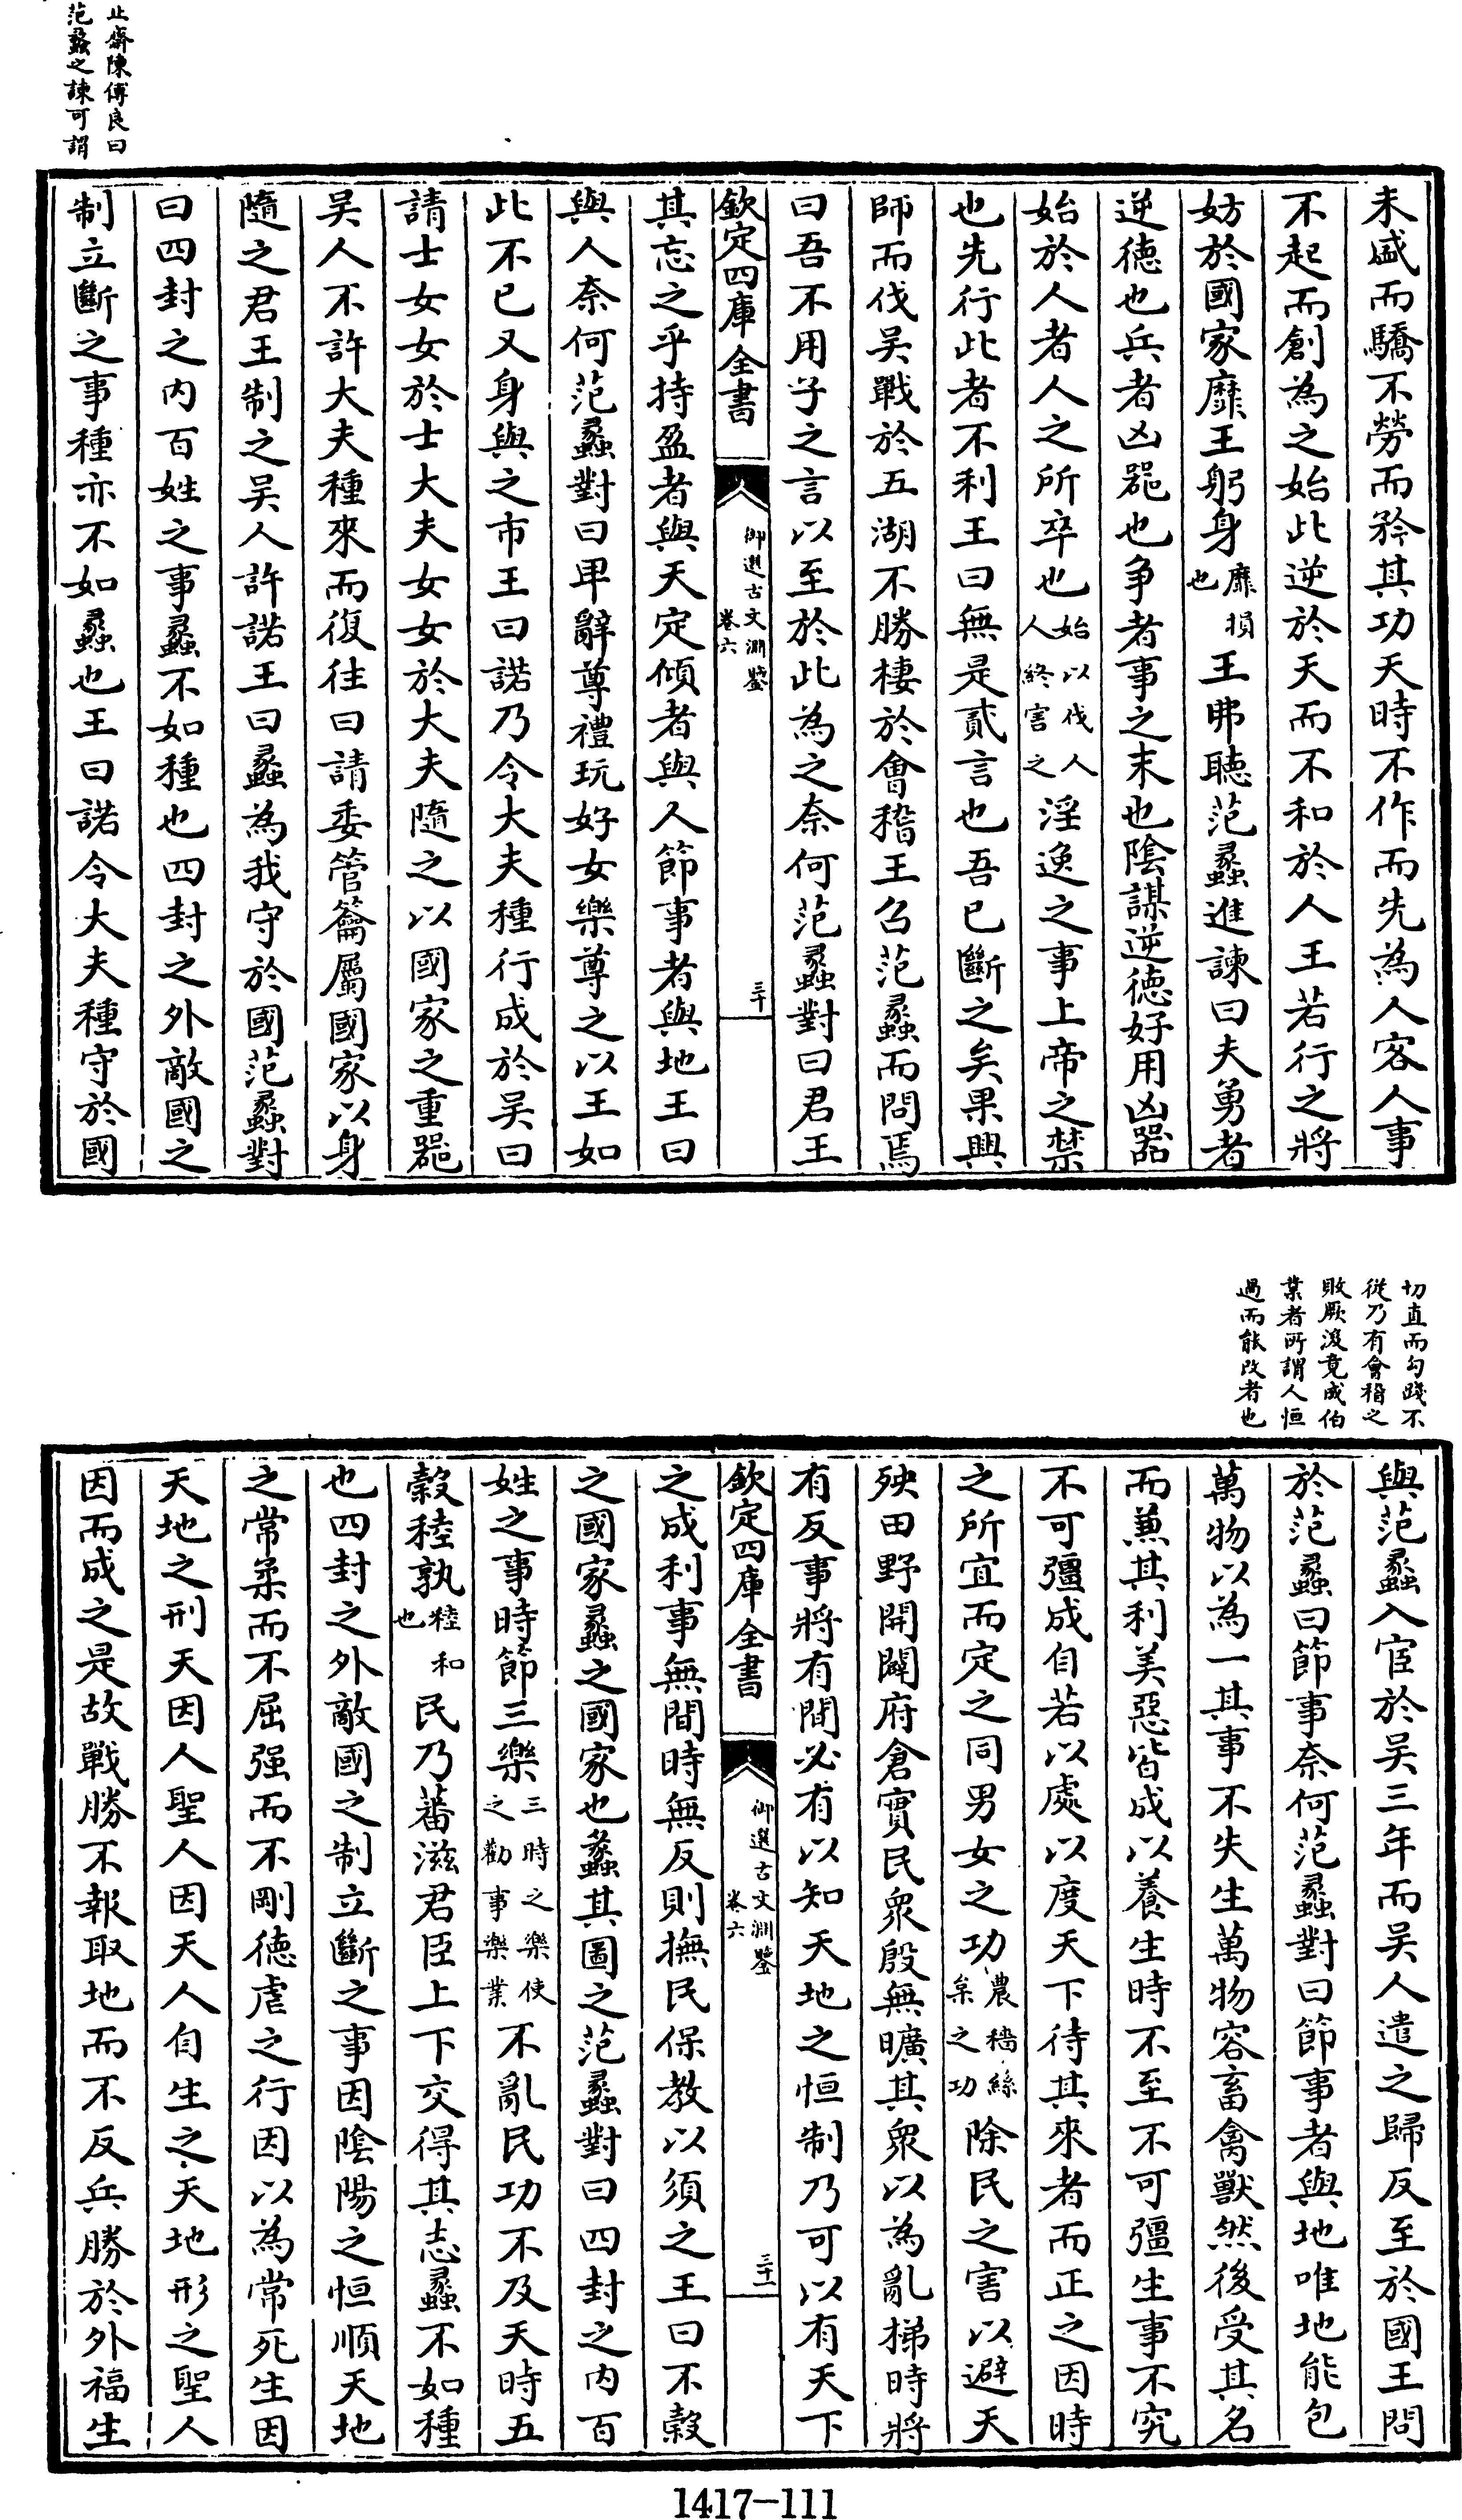 止齋陳傅良曰
范蠡之諫可謂
未盛而驕不勞而矜其功天時不作而先為人客人事
不起而創為之始此逆於天而不和於人王若行之將
妨於國家靡王躬身靡損也王弗聽范蠡進諫曰夫勇者
逆德也兵者凶器也爭者事之末也陰謀逆德好用凶器
始於人者人之所卒也始以伐人人終害之淫逸之事上帝之禁
也先行此者不利王曰無是貳言也吾已斷之矣果興
師而伐吳戰於五湖不勝棲於會稽王召范蠡而問焉
曰吾不用子之言以至於此為之奈何范蠡對曰君王
欽定四庫全書
御選古文淵鑒
卷六
三十
其忘之乎持盈者與天定傾者與人節事者與地王曰
與人奈何范蠡對曰卑辭尊禮玩好女樂尊之以王如
此不已又身與之市王曰諾乃令大夫種行成於吳曰
請士女女於士大夫女女於大夫隨之以國家之重器
吳人不許大夫種來而復往曰請委管籥屬國家以身
隨之君王制之吳人許諾王曰蠡為我守於國范蠡對
曰四封之內百姓之事蠡不如種也四封之外敵國之
制立斷之事種亦不如蠡也王曰諾令大夫種守於國
切直而勾踐不
從乃有會稽之
敗厥後竟成伯
業者所謂人恒
過而能改者也
與范蠡入宦於吳三年而吳人遣之歸反至於國王問
於范蠡曰節事奈何范蠡對曰節事者與地唯地能包
萬物以為一其事不失生萬物容畜禽獸然後受其名
而兼其利美惡皆成以養生時不至不可彊生事不究
不可彊成自若以處以度天下待其來者而正之因時
之所宜而定之同男女之功農穡絲枲之功除民之害以避天
殃田野開闢府倉實民衆殷無曠其衆以為亂梯時將
有反事將有間必有以知天地之恒制乃可以有天下
欽定四庫全書
御選古文淵鑒
卷六
三十一
之成利事無間時無反則撫民保教以須之王曰不榖
之國家蠡之國家也蠡其圖之范蠡對曰四封之內百
姓之事時節三樂三時之樂使之勸事樂業不亂民功不及天時五
穀稑孰稑和也民乃蕃滋君臣上下交得其志蠡不如種
也四封之外敵國之制立斷之事因陰陽之恒順天地
之常柔而不屈强而不剛德虐之行因以為常死生因
天地之刑天因人聖人因天人自生之天地形之聖人
因而成之是故戰勝不報取地而不反兵勝於外福生
1417—111